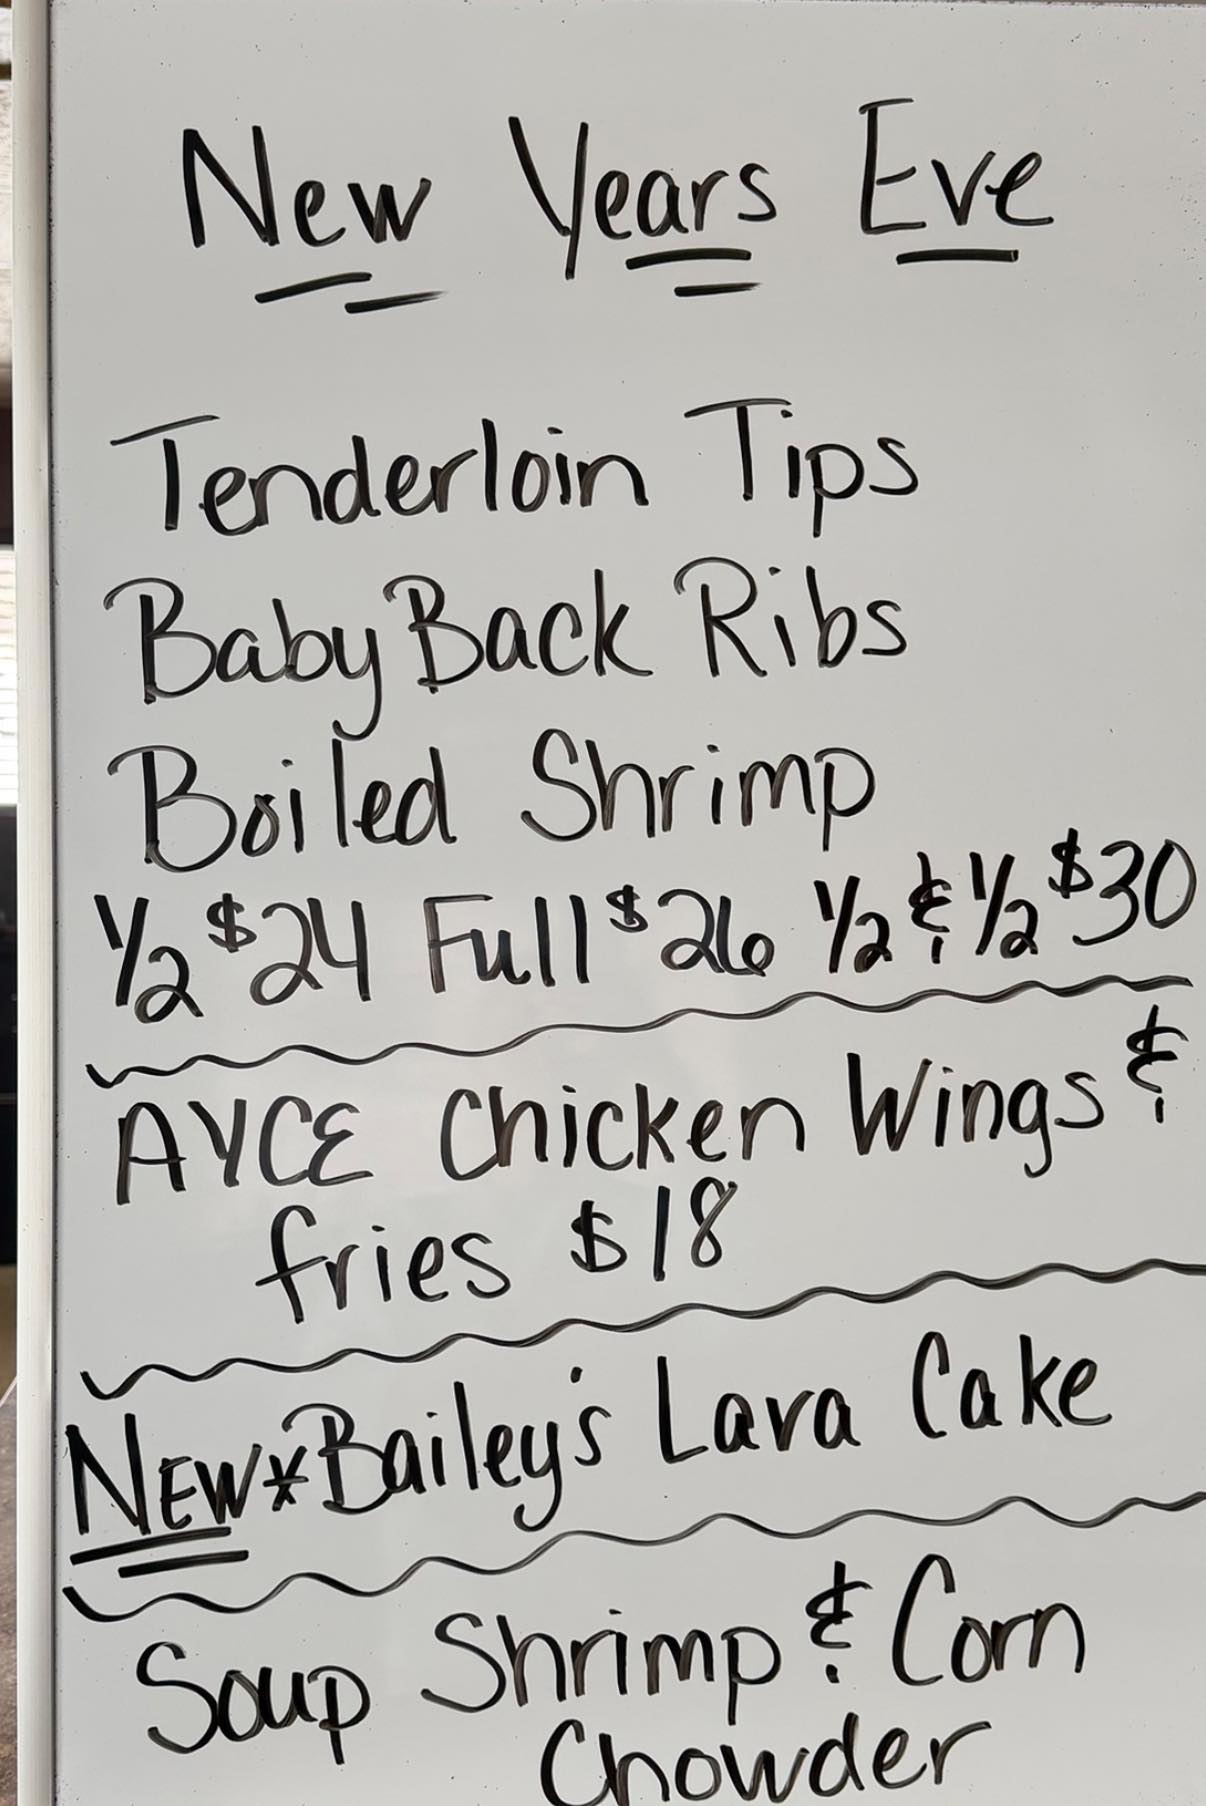 New Years Eve
Tenderloin Tips
Baby Back Ribs
Boiled Shrimp
1/2 $24 Full $26 1/2 & 1/2 $30
AYCE Chicken Wings &
fries $18
NEW*Bailey's Lava Cake
Soup Shrimp & Corn
Chowder